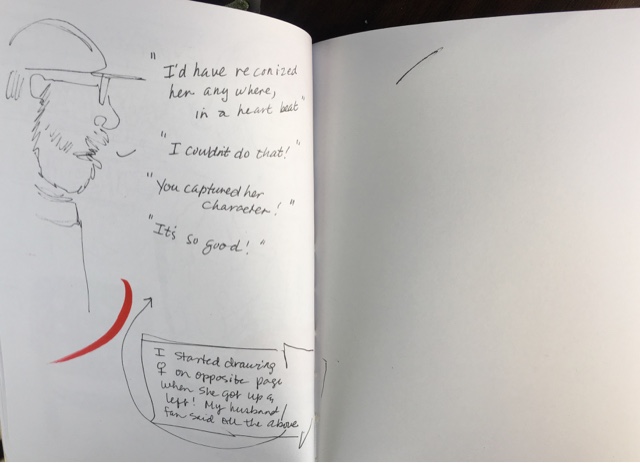 "I'd have reconized
her any where,
in a heart beat"
"I couldn't do that!"
"You captured her
character!"
"It's so good!"
I started drawing
♀ on opposite page
when she got up &
left! My husband/
fan said all the above